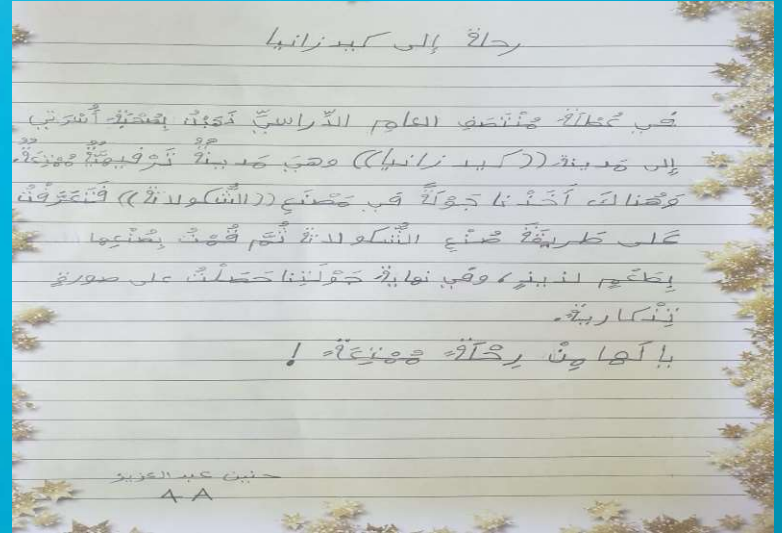 رحلة إلى كيدزانيا
في عُطلَةِ مُنْتَصَفِ العامِ الدِّراسيِّ ذَهَبْتُ بِصُحْبَةِ أُسْرَتي
إلى مَدينة ((كيدزانيا)) وهيَ مَدينةٌ تَرْفيهيَّةٌ مُمْتِعَةٌ.
وَهُنالكَ أَخَذْنا جولَةً في مَصْنَعِ ((الشُّكولاتةِ)) فَتَعَرَّفْتُ
عَلى طَريقَةِ صُنْعِ الشُّكولاتةِ ثُمَّ قُمْتُ بِصُنْعِها
بِطَعْمٍ لذيذٍ، وفي نهايةِ جَوْلَتِنا حَصَلْتُ على صورةٍ
تِذْكاريةٍ.
يا لَها مِنْ رِحْلَةٍ مُمْتِعَةٍ !
حنين عبد العزيز
4-A